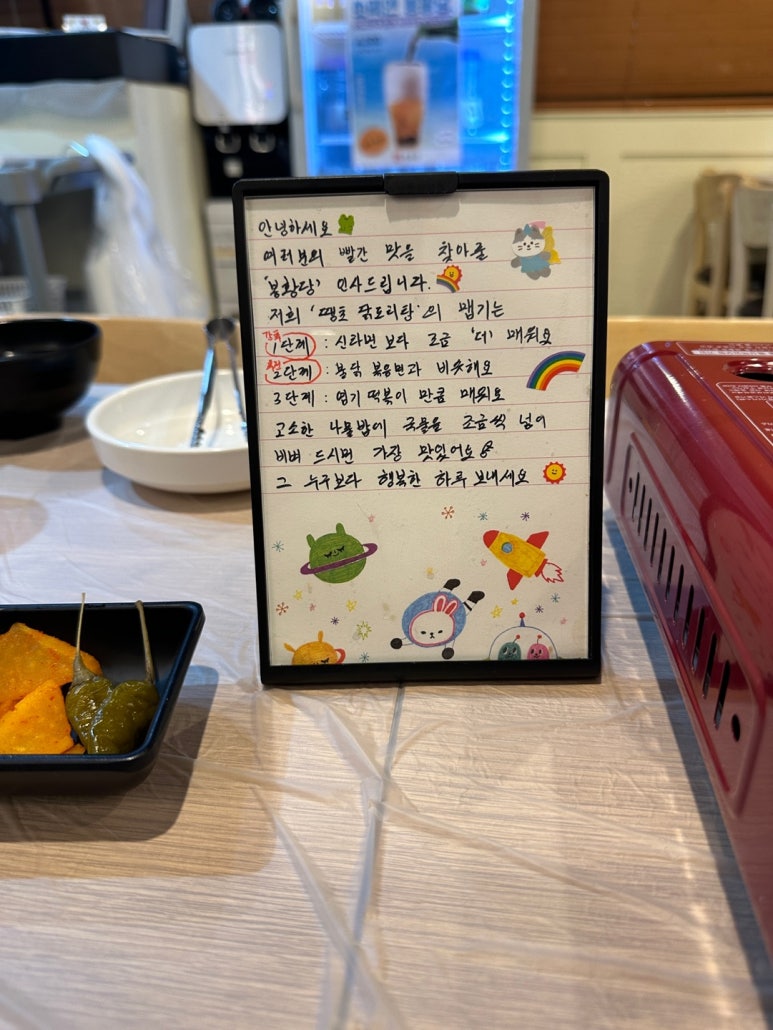 안녕하세요
여러분의 빨간 맛을 찾아줄
'봉황당' 인사드립니다.
저희 '땡초 닭도리탕'의 맵기는
강추
1단계 : 신라면 보다 조금 '더' 매워요
2단계 : 불닭 볶음면과 비슷해요
3단계 : 엽기 떡볶이 만큼 매워요
고소한 나물밥이 국물을 조금씩 넣어
비벼 드시면 가장 맛있어요
그 누구보다 행복한 하루 보내세요